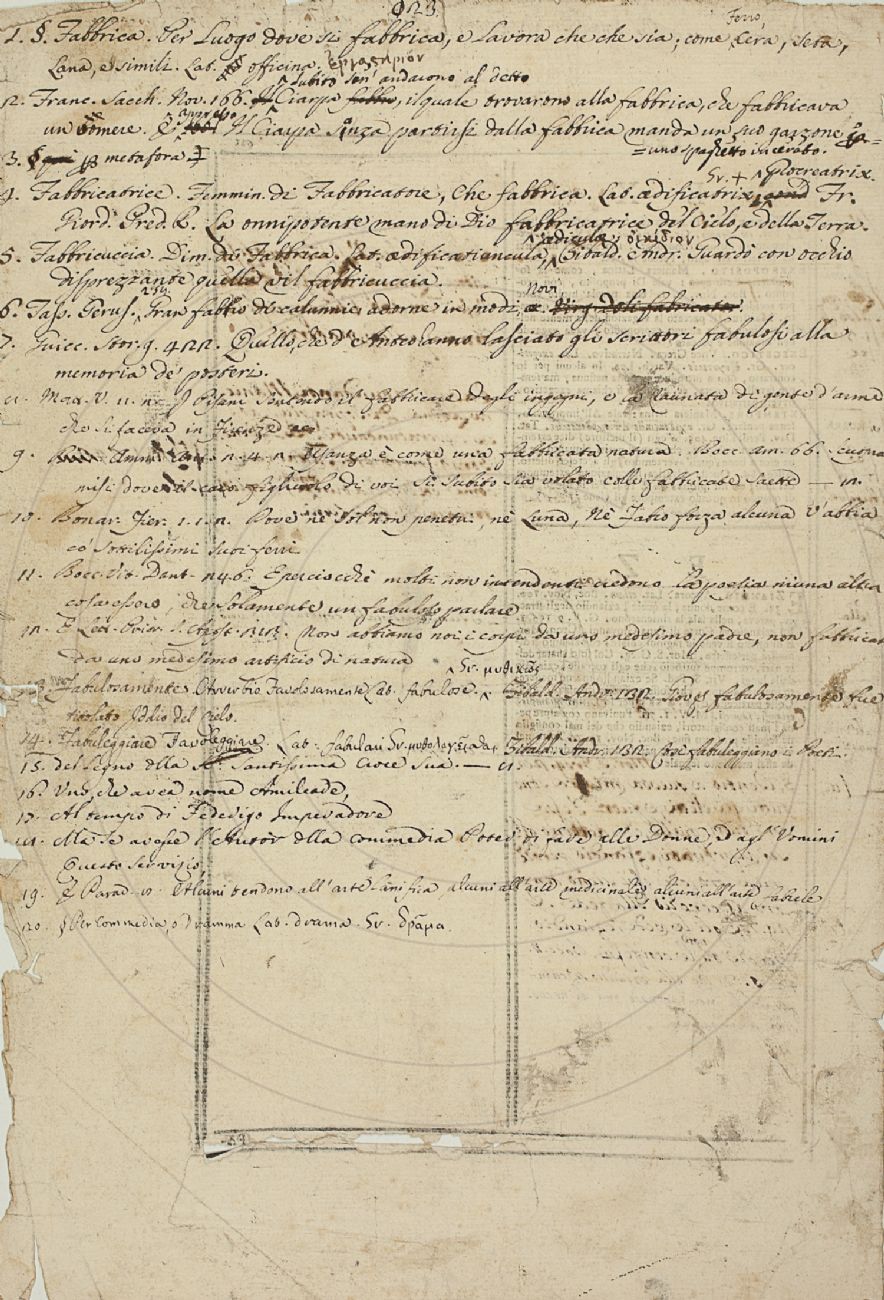 123.
Ferro,
1. §. Fabbrica. Per Luogo dove si fabbrica, e lavora che che sia; come Cera, Seta,
Lana, e simili. Lat. officina. ἐργαστήριον
subito sen' andarono al detto
2. Franc. Sacch. Nov. 166. Ciarpa fabbro, il quale trovarono alla fabbrica, che fabbricava
un vomere. E appresso Il Ciarpa sanza partirsi dalla fabbrica manda un suo garzone
= uno spaghetto incerato.
3. § metafora
Gr. + Procreatrix.
4. Fabbricatrice. Femmin. di Fabbricatore, Che fabbrica. Lat. ædificatrix, Fr.
Giord. Pred. R. La onnipotente mano di Dio fabbricatrice del Cielo, e della Terra.
ædicula οἰκίδιον
5. Fabbricuccia. Dim. di Fabbrica. Lat. ædificatiuncula, Tribald. Andr. Guardò con occhio
disprezzante quella vil fabbricuccia.
novi,
6. Tass. Gerus. Gran fabbro di calunnie, adorne in modi, Virg. doli fabricator.
7. Guicc. Stor. 9. 422. Quello, che d'Anteo hanno lasciato gli scrittori fabulosi alla
memoria de' posteri.
8. M. V. 11. I Pisani sentendo il fabbricare degli ingegni, e la raunata di gente d'arme
che si faceva in Firenze
9. Usanza è come una fabbricata natura. Bocc. am. 66.
misi dove il caro figliuolo di voi si subito sia volato colle fabbricate saette —
10. Bonar. Fier. 1. 1. Dove nè Sol non penetri, nè Luna, Nè Fabro forza alcuna v'abbia
co' sottilissimi suoi ferri
11. Bocc. Vit. Dant. 246. Eperciocchè molti non intendenti credono la poesia niuna altra
cosa essere, che solamente un fabuloso parlare
12. E Lett. Prior. S. Apost. Non abbiamo noi i corpi da uno medesimo padre, non fabbricat
da uno medesimo artificio di natura
Gr. μυθικῶς
13. Fabulosamente. Avverbio Favolosamente. Lat. fabulose. Tribald. Andr. 132. Giove fabulosamente fue
titolato Iddio del Cielo.
14. Fabuleggiare Favoleggiare. Lat. fabulari Gr. μυθολογεῖσθαι. Tribald. Andr. 132. fabuleggiano i Poeti.
15. del legno della Santissima Croce sua. —
16. Uno, che avea nome Amilcade,
17. Al tempo di Federigo Imperadore
18. Ma se avesse l'Autor della commedia Poter di fare alle Donne, ed agl' Uomini
Questo servizio,
19. E Parad. Alcuni tendono all' arte lanifica, alcuni all' arte medicinale, alcuni all' arte fabrile
20. § Per Commedia, o Dramma. Lat. drama. Gr. δρᾶμα.